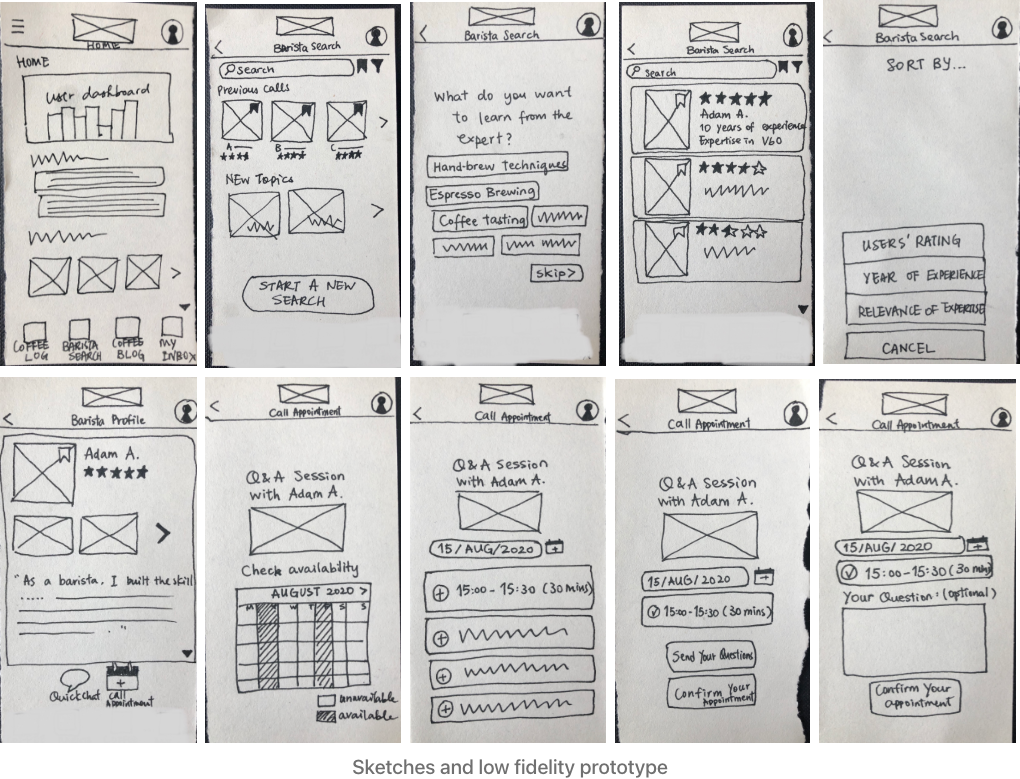 HOME
HOME
User dashboard
COFFEE LOG
BARISTA SEARCH
COFFEE BLOG
My INBOX
Barista Search
Search
Previous Calls
A
B
C
NEW Topics
START A NEW
SEARCH
Barista Search
What do you want
to learn from the
expert?
Hand-brew techniques
Espresso Brewing
Coffee tasting
skip>
Barista Search
Search
Adam A.
10 years of experience
Expertise in V60
Barista Search
SORT BY...
USERS' RATING
YEAR OF EXPERIENCE
RELEVANCE OF EXPERTISE
CANCEL
Barista Profile
Adam A.
"As a barista, I built the skill
..... 
."
Quick Chat
Call Appointment
Call Appointment
Q&A Session
with Adam A.
Check availability
AUGUST 2020 >
M T W T F S S
unavailable
available
Call Appointment
Q&A Session
with Adam A.
15/AUG/2020
15:00-15:30 (30 mins)
Call Appointment
Q&A Session
with Adam A.
15/AUG/2020
15:00-15:30 (30 mins)
Send Your Questions
Confirm Your
Appointment
Call Appointment
Q&A Session
with Adam A.
15/AUG/2020
15:00-15:30 (30 mins)
Your Question: (optional)
Confirm Your
appointment
Sketches and low fidelity prototype